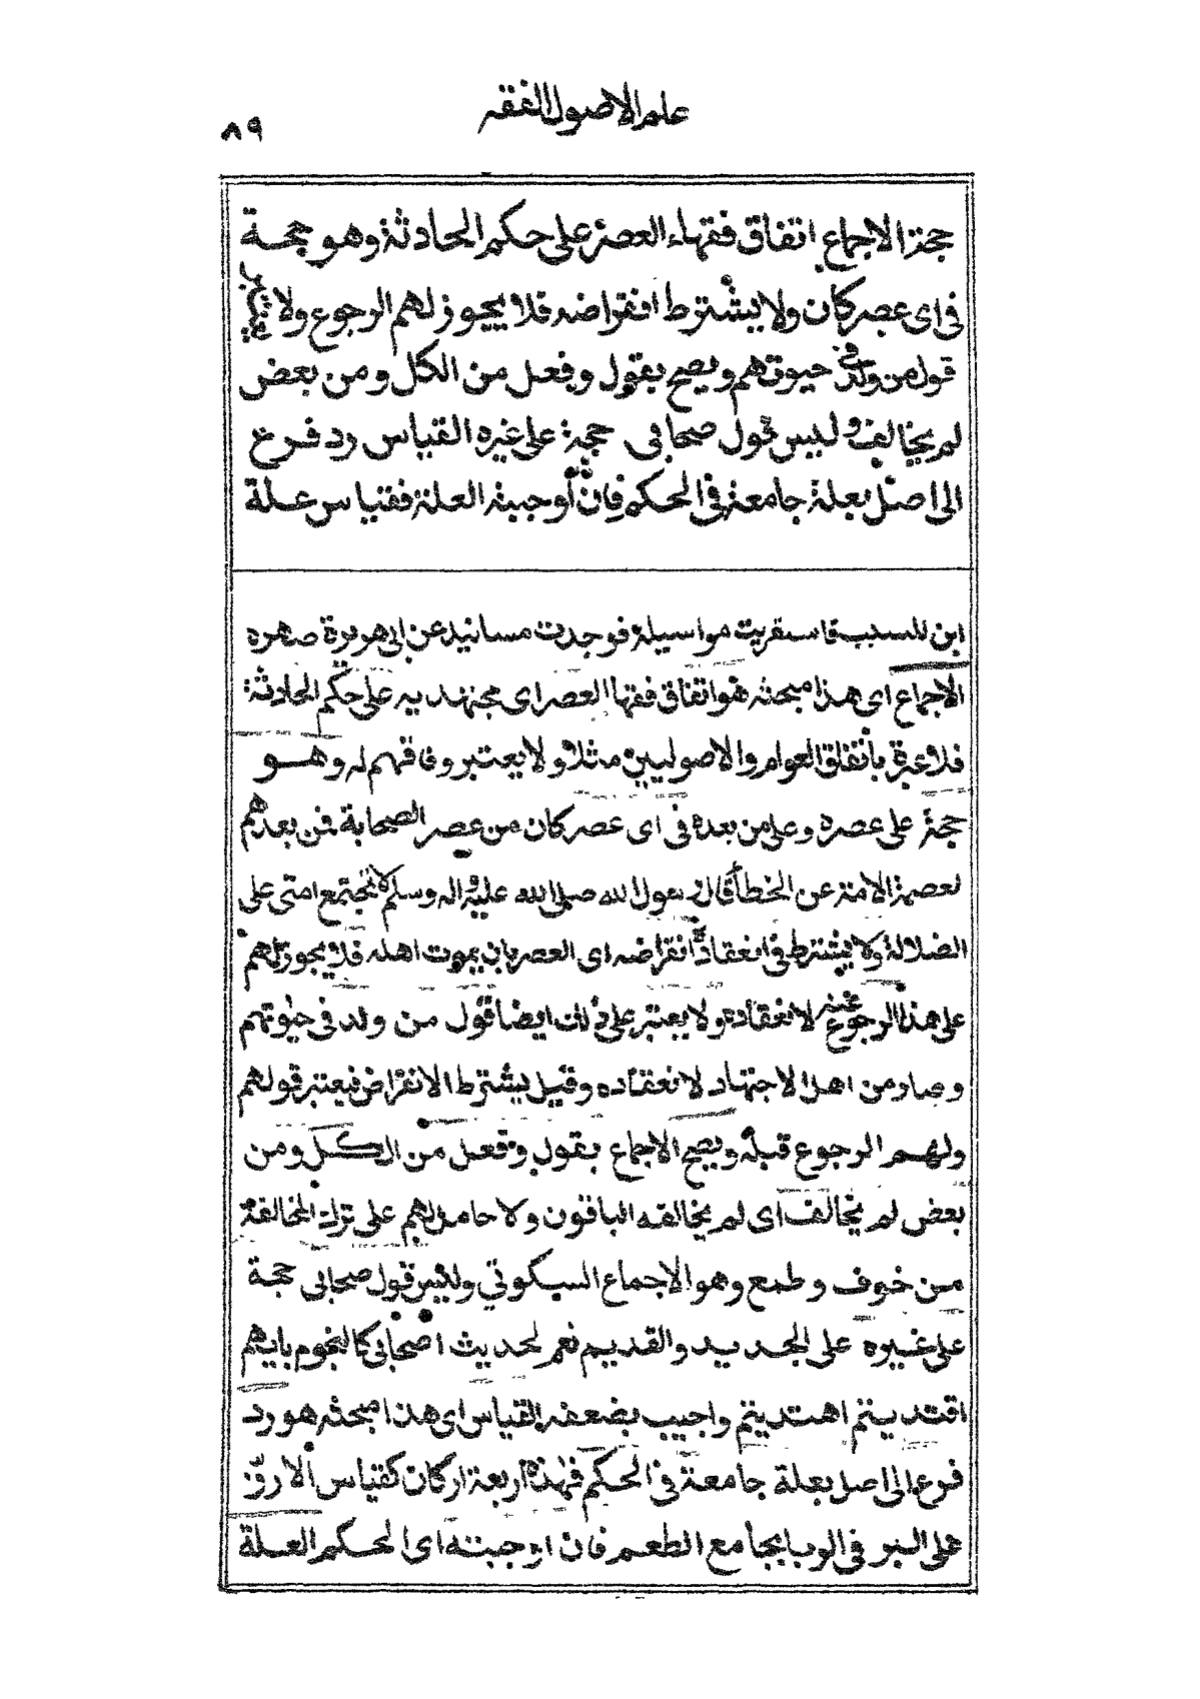 علم الاصول الفقه
٨٩
حجة الاجماع اتفاق فقهاء العصر على حكم الحادثة وهو حجـــة
فى اى عصر كان ولا يشترط انقراضه فلا يجوز لهم الرجوع ولا يعتبر
قول من ولد فى حيوتهم ويصح بقول وفعل من الكل ومن بعض
لم يخالف وليس قول صحابى حجة على غيره القياس رد فرع
الى اصل بعلة جامعة فى الحكم فان أوجبته العلة فقياس علـة
ابن المسيب فاستقريت مراسيله فوجدت مسانيد عن ابى هريرة صهره
الاجماع اى هذا مبحثه هو اتفاق فقها العصر اى مجتهديه على حكم الحادثة
فلا عبرة باتفاق العوام والاصوليين مثلا ولا يعتبر وفاقهم له وهــو
حجة على عصره وعلى من بعده فى اى عصر كان من عصر الصحابة فمن بعدهم
لعصمة الامة عن الخطأ قال رسول الله صلى الله عليه واله وسلم لا تجتمع امتى على
الضلالة ولا يشترط فى انعقاده انقراضه اى العصر بان يموت اهله فلا يجوز لهم
على هذا الرجوع عنه لانعقاده ولا يعتبر على ذلك ايضا قول من ولد فى حيوتهم
وصار من اهل الاجتهاد لانعقاده وقيل يشترط الانقراض فيعتبر قولهم
ولهــم الرجوع قبله ويصح الاجماع بقول وفعل من الكــل ومن
بعض لم يخالف اى لم يخالفه الباقون ولا حامل لهم على ترك المخالفة
من خوف وطمع وهو الاجماع السكوتي وليس قول صحابى حجـة
على غيره على الجديد والقديم نعم لحديث اصحابى كالنجوم بايهم
اقتديتم اهتديتم واجيب بضعفه القياس اى هذا مبحثه هو رد
فرع الى اصل بعلة جامعة فى الحكم فهذه اربعة اركان كقياس الارز
على البر فى الربا بجامع الطعم فان اوجبته اى الحكم العـلة